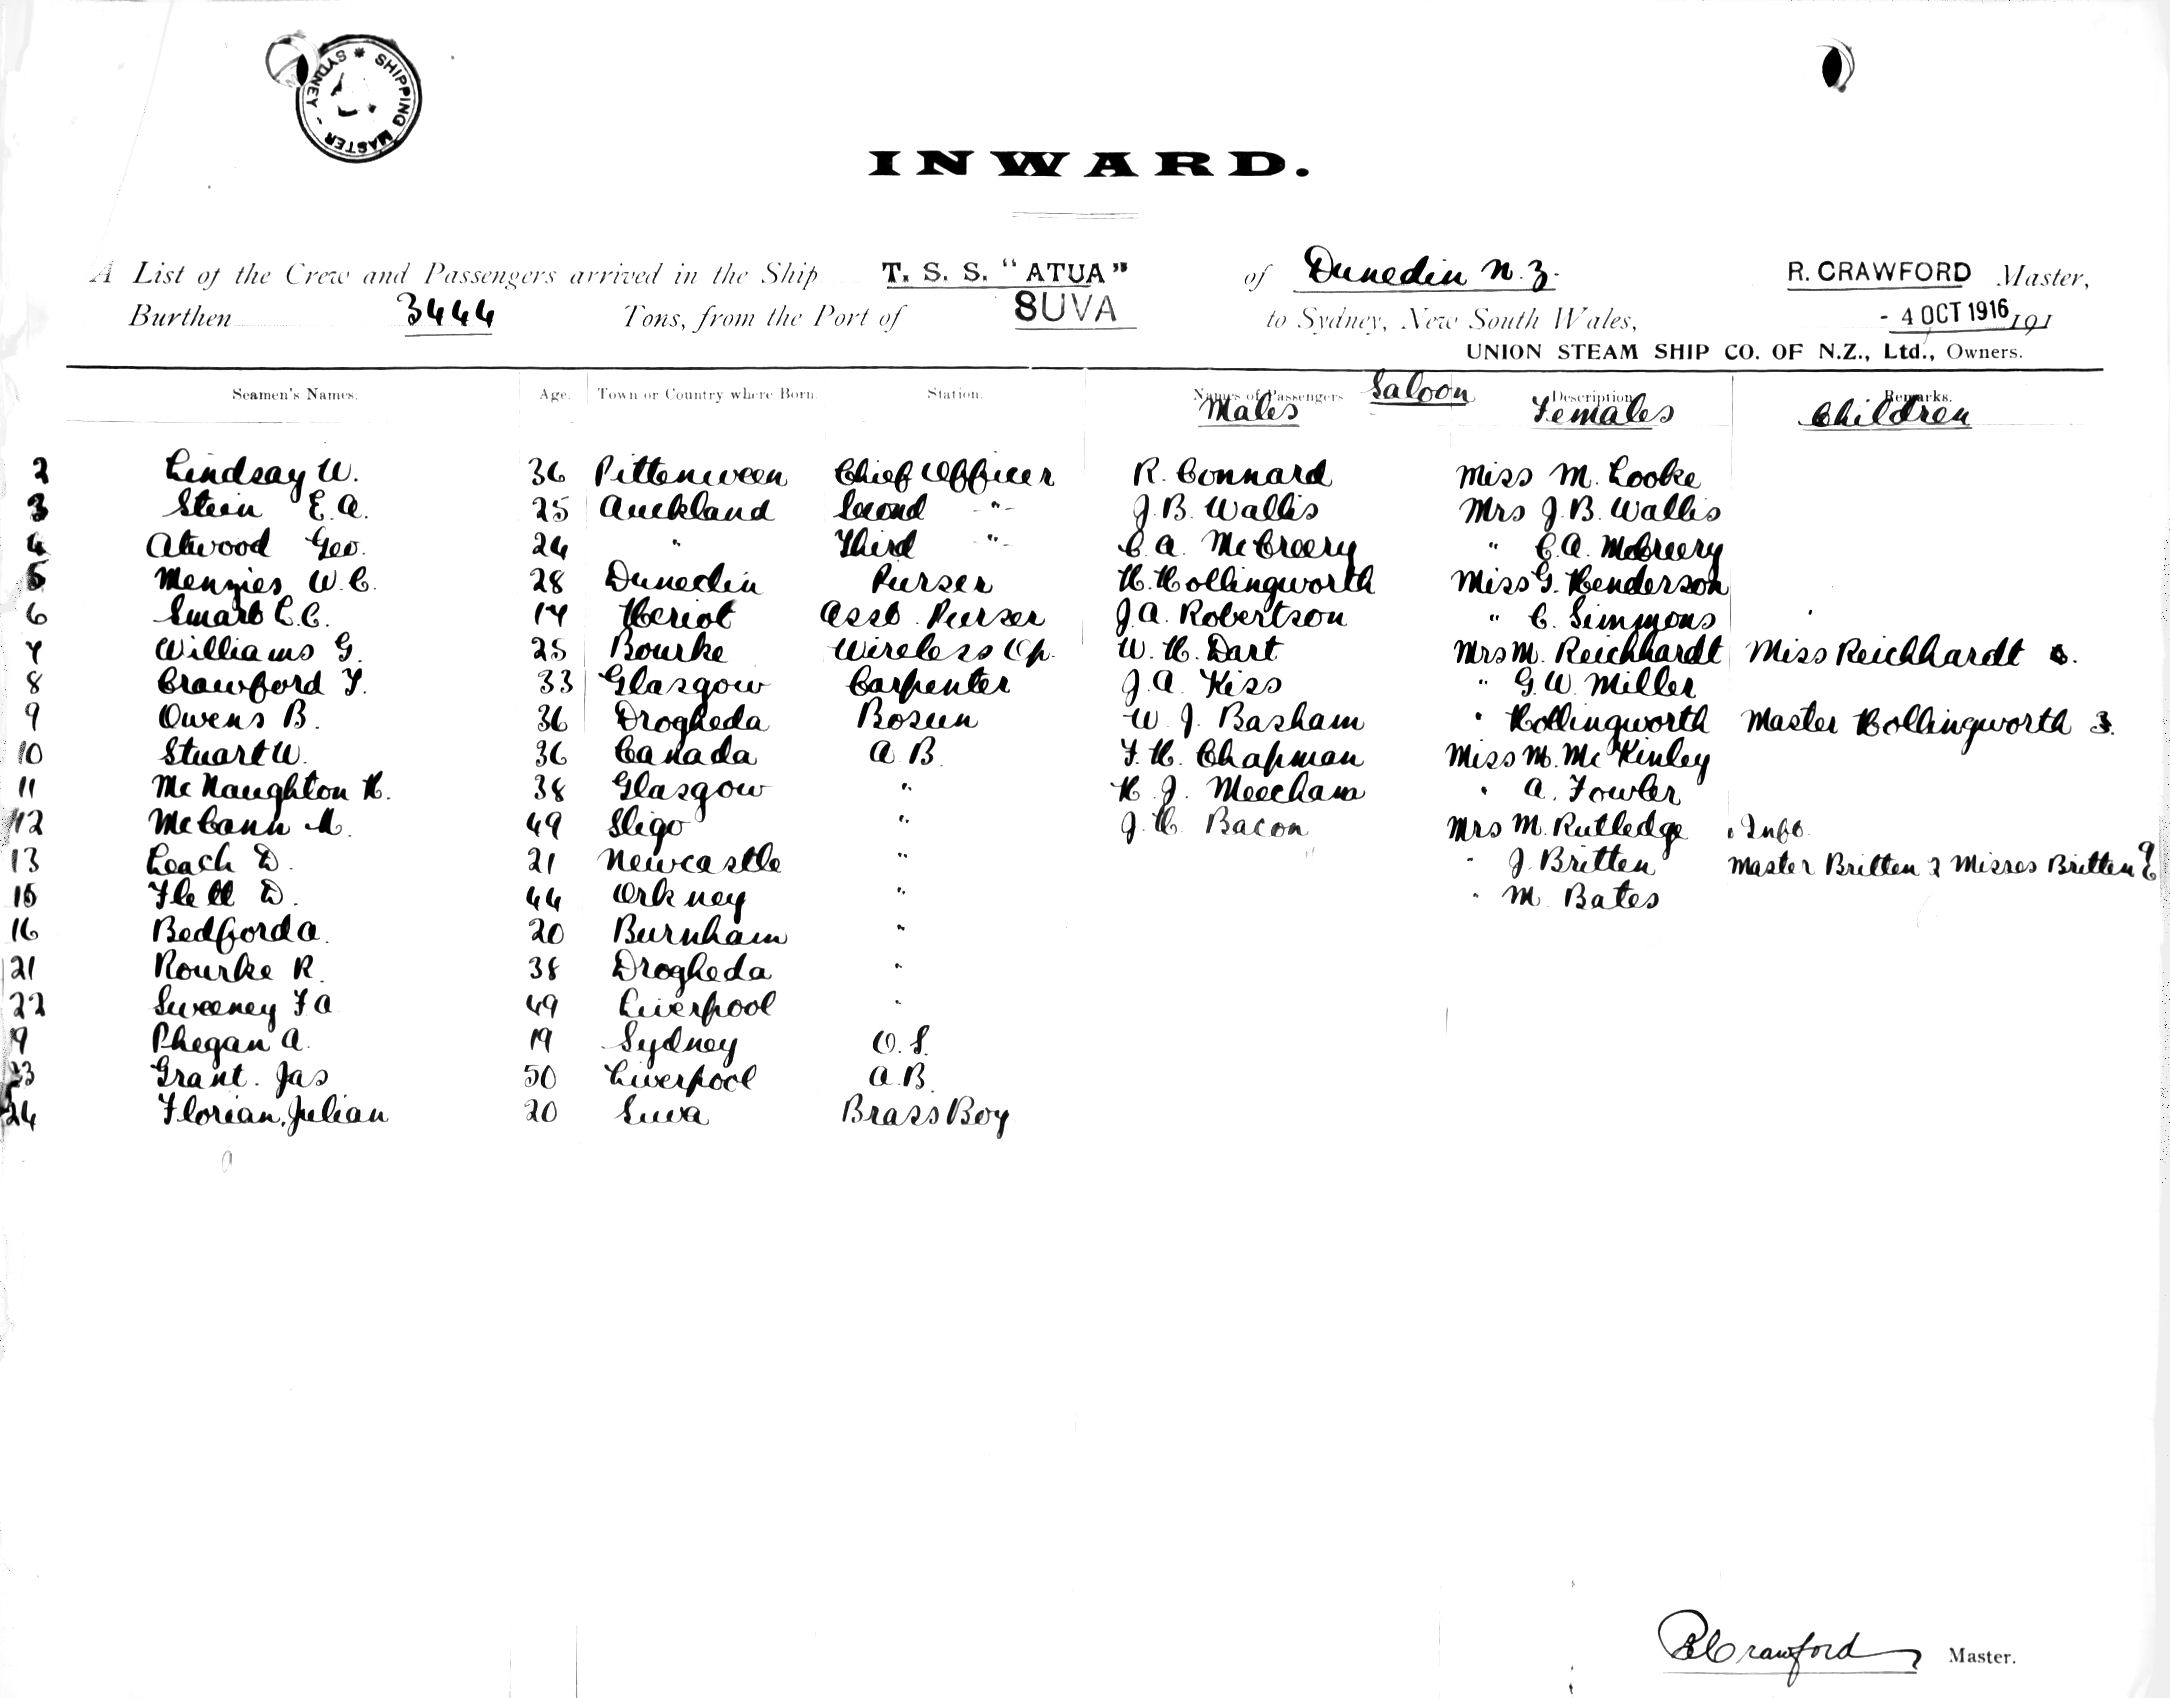 SHIPPING MASTER - SYDNEY *
INWARD.
A List of the Crew and Passengers arrived in the Ship T. S. S. "ATUA" of Dunedin N.Z. R. CRAWFORD Master,
Burthen 3444 Tons, from the Port of SUVA to Sydney, New South Wales, - 4 OCT 1916 191
UNION STEAM SHIP CO. OF N.Z., Ltd., Owners.
Seamen's Names. Age. Town or Country where Born. Station. Names of Passengers Saloon Description Remarks.
Males Females Children
2 Lindsay W. 36 Pittenween Chief Officer R. Connard Miss M. Looke
3 Stein E.A. 25 Auckland Second " J.B. Wallis Mrs J.B. Wallis
4 Atwood Geo. 24 " Third " C.A. McCreery " C.A. McCreery
5 Menzies W.C. 28 Dunedin Purser H. Hollingworth Miss G. Henderson
6 Smart L.C. 17 Heriot Asst. Purser J.A. Robertson " C. Simmons
7 Williams G. 25 Bourke Wireless Op. W.H. Dart Mrs M. Reichhardt Miss Reichhardt
8 Crawford F. 33 Glasgow Carpenter J.A. Kiss " G.W. Miller
9 Owens B. 36 Drogheda Bosun W.J. Basham " Hollingworth Master Hollingworth 3.
10 Stuart W. 36 Canada A.B. F.H. Chapman Miss M. McKinley
11 McNaughton H. 38 Glasgow " H.J. Meecham " A. Fowler
12 McCann M. 49 Sligo " J.H. Bacon Mrs M. Rutledge 1 Inft.
13 Leach D. 21 Newcastle " " J. Britten Master Britten 2 Misses Britten
15 Flett D. 44 Orkney " " M. Bates
16 Bedford A. 20 Burnham "
21 Rourke R. 38 Drogheda "
22 Sweeney F A 49 Liverpool "
9 Phegan A. 19 Sydney O.S.
23 Grant. Jas 50 Liverpool A.B.
24 Florian, Julian 20 Suva Brass Boy
R Crawford Master.